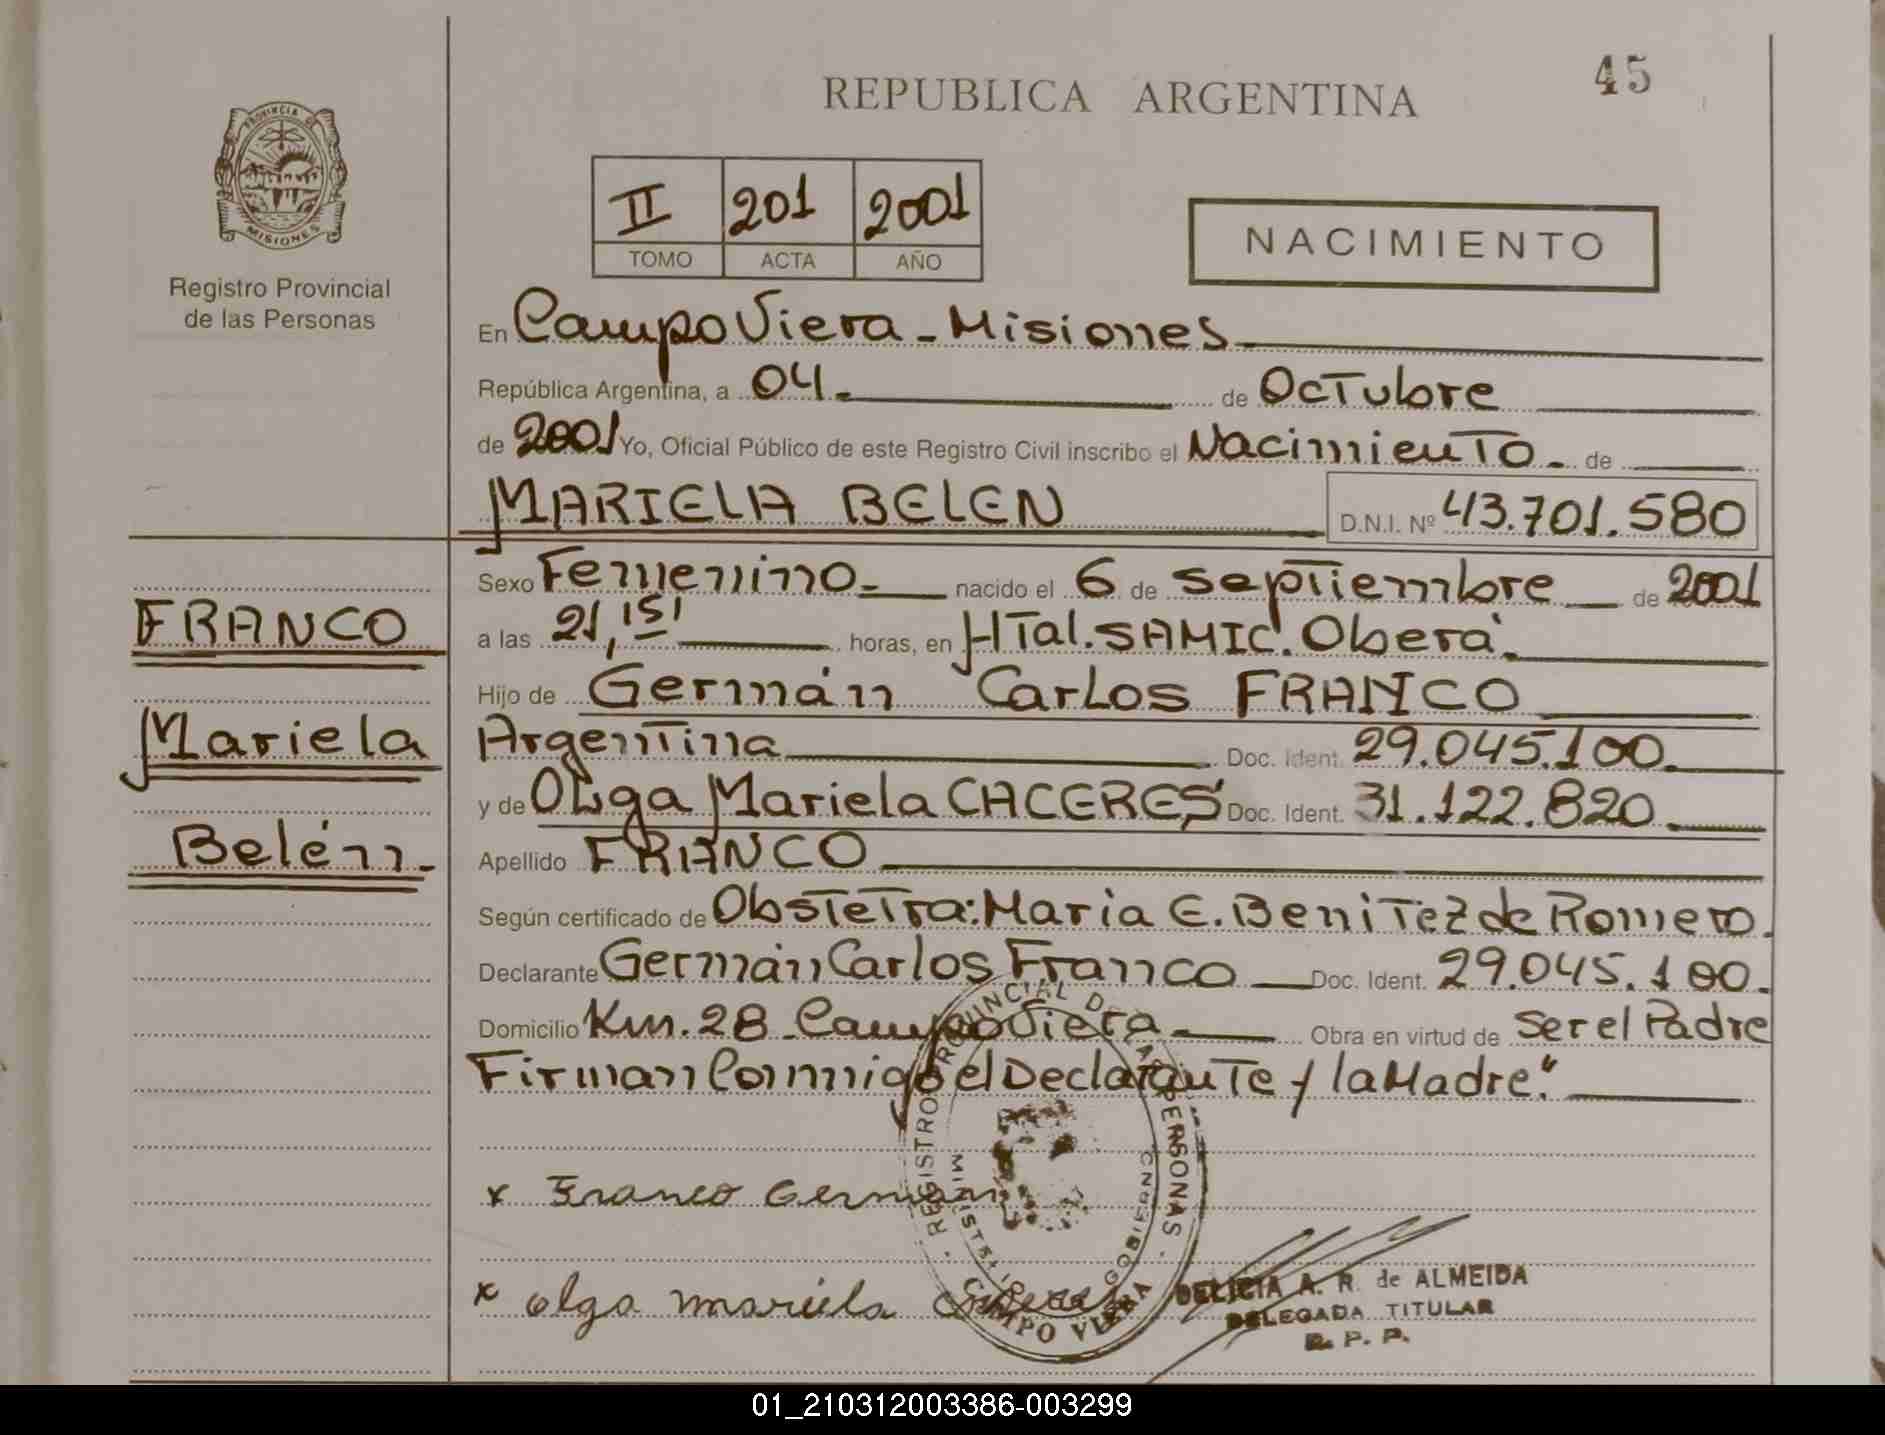 45
REPUBLICA ARGENTINA
PROVINCIA DE
MISIONES
Registro Provincial
de las Personas
II 201 2001
TOMO ACTA AÑO
NACIMIENTO
En Campo Viera - Misiones
República Argentina, a 04. de Octubre
de 2001 Yo, Oficial Público de este Registro Civil inscribo el Nacimiento. de
MARIELA BELEN D.N.I. Nº 43.701.580
FRANCO
Mariela
Belén.
Sexo Femenino nacido el 6 de septiembre de 2001
a las 21,15' horas, en HTal. SAMIC. Oberá.
Hijo de Germán Carlos FRANCO
Argentina Doc. Ident. 29.045.100.
y de OLga Mariela CACERES Doc. Ident. 31.122.820.
Apellido FRANCO
Según certificado de Obstetra: Maria E. Benitez de Romero.
Declarante Germán Carlos Franco Doc. Ident. 29.045.100.
Domicilio Km. 28 Campo Viera Obra en virtud de ser el Padre
Firman Conmigo el Declarante y la Madre."
REGISTRO PROVINCIAL DE LAS PERSONAS
CAMPO VIERA
x Franco German
x olga mariela
DELICIA A. R. de ALMEIDA
DELEGADA TITULAR
R. P. P.
01_210312003386-003299